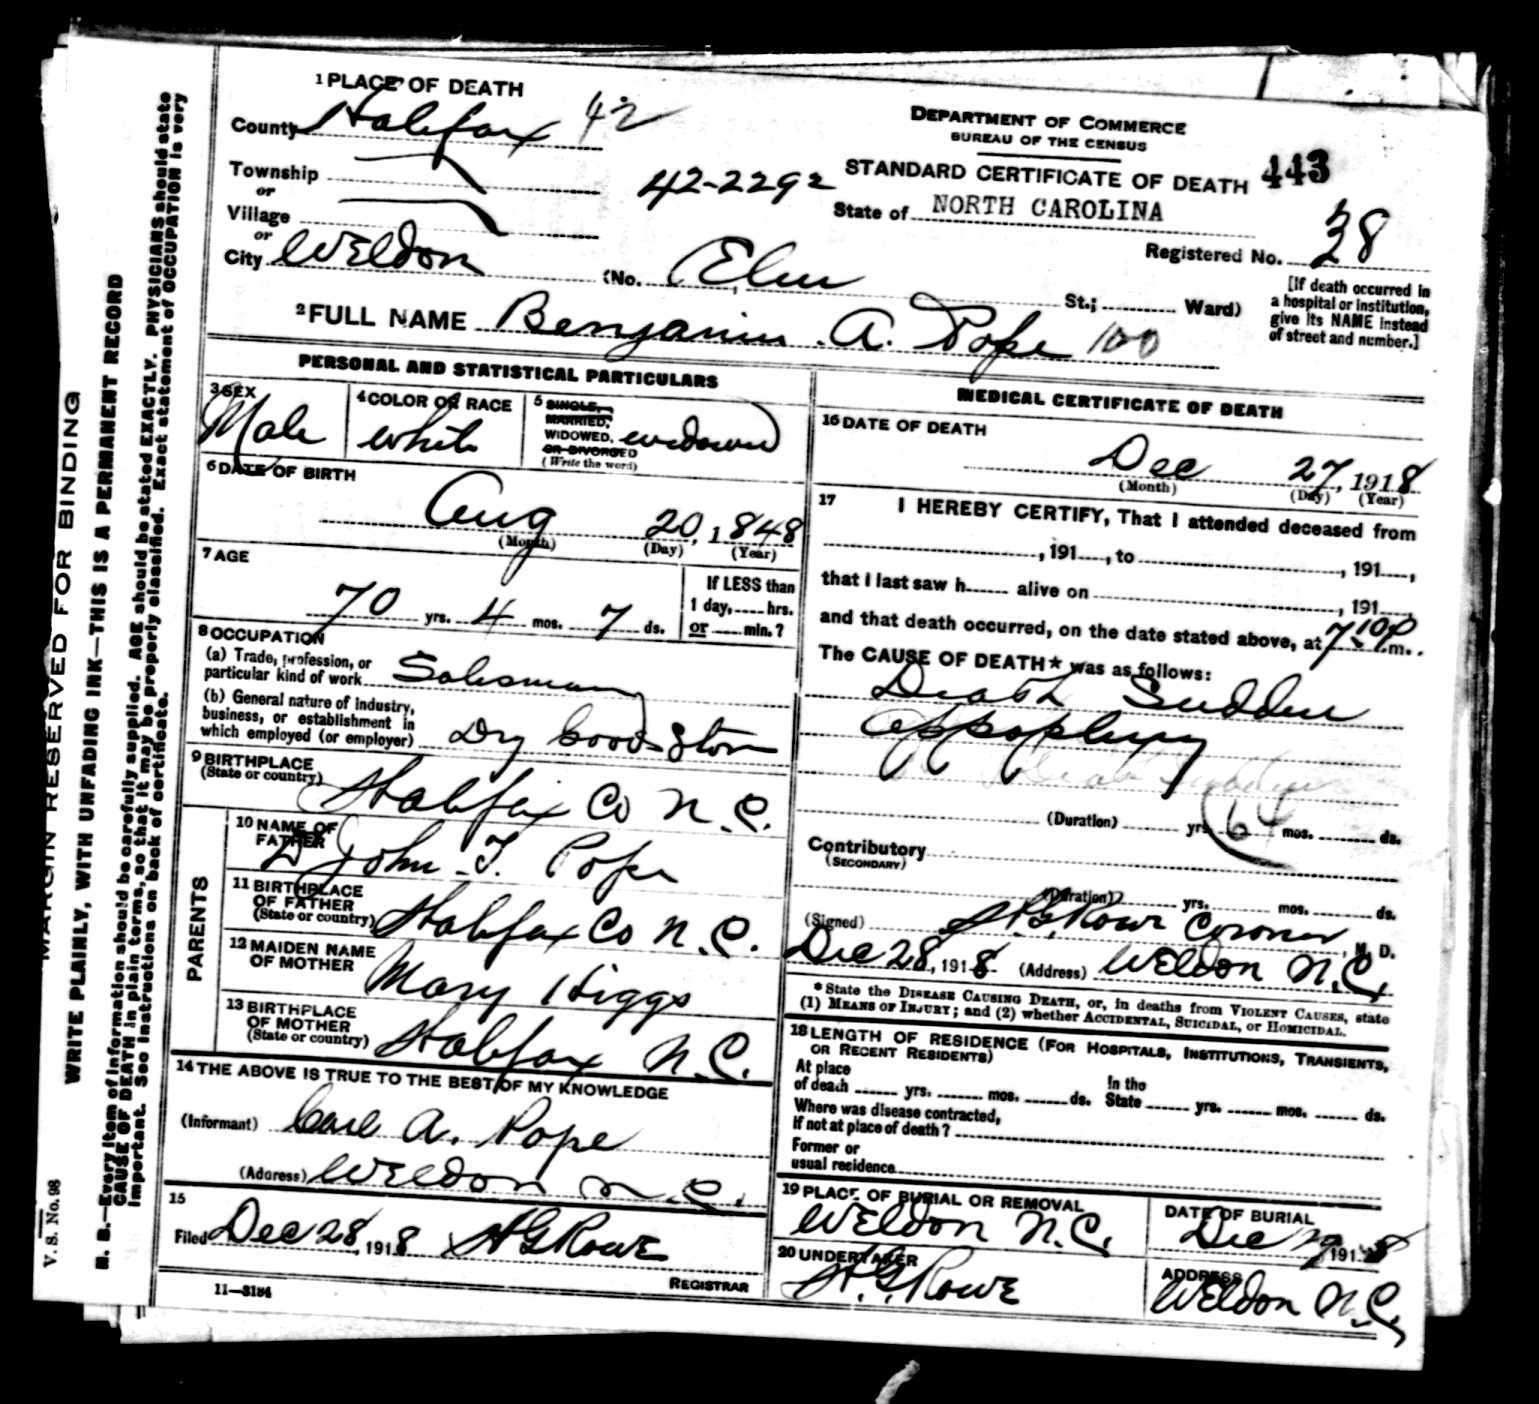 1 PLACE OF DEATH
County Halifax 42
Township
or
Village
or
City Weldon
42-2292
DEPARTMENT OF COMMERCE
BUREAU OF THE CENSUS
STANDARD CERTIFICATE OF DEATH 443
State of NORTH CAROLINA
Registered No. 38
(No. Elm St.; Ward)
[If death occurred in
a hospital or institution,
give its NAME instead
of street and number.]
2 FULL NAME Benjamin A. Pope 100
PERSONAL AND STATISTICAL PARTICULARS
3 SEX
Male
4 COLOR OR RACE
white
5 SINGLE,
MARRIED,
WIDOWED, widowed
OR DIVORCED
(Write the word)
6 DATE OF BIRTH
Aug 20, 1848
(Month) (Day) (Year)
7 AGE
70 yrs. 4 mos. 7 ds.
If LESS than
1 day, hrs.
or min.?
8 OCCUPATION
(a) Trade, profession, or
particular kind of work Salesman
(b) General nature of industry,
business, or establishment in
which employed (or employer) Dry Goods Store
9 BIRTHPLACE
(State or country) Halifax Co N.C.
PARENTS
10 NAME OF
FATHER John T. Pope
11 BIRTHPLACE
OF FATHER
(State or country) Halifax Co N.C.
12 MAIDEN NAME
OF MOTHER Mary Higgs
13 BIRTHPLACE
OF MOTHER
(State or country) Halifax N.C.
14 THE ABOVE IS TRUE TO THE BEST OF MY KNOWLEDGE
(Informant) Carl A. Pope
(Address) Weldon N.C.
15
Filed Dec 28, 1918 H G Rowe
REGISTRAR
11—3184
MEDICAL CERTIFICATE OF DEATH
16 DATE OF DEATH
Dec 27, 1918
(Month) (Day) (Year)
17 I HEREBY CERTIFY, That I attended deceased from
, 191 , to , 191 ,
that I last saw h alive on , 191
and that death occurred, on the date stated above, at 7 10 P m.
The CAUSE OF DEATH* was as follows:
Death Sudden
Appoplexy
(Duration) yrs. 64 mos. ds.
Contributory
(SECONDARY)
(Duration) yrs. mos. ds.
(Signed) H.G. Rowe Coroner, M. D.
Dec 28, 1918 (Address) Weldon N.C.
*State the DISEASE CAUSING DEATH, or, in deaths from VIOLENT CAUSES, state
(1) MEANS OF INJURY; and (2) whether ACCIDENTAL, SUICIDAL, or HOMICIDAL.
18 LENGTH OF RESIDENCE (FOR HOSPITALS, INSTITUTIONS, TRANSIENTS,
OR RECENT RESIDENTS)
At place
of death yrs. mos. ds.
In the
State yrs. mos. ds.
Where was disease contracted,
If not at place of death?
Former or
usual residence
19 PLACE OF BURIAL OR REMOVAL
Weldon N.C.
DATE OF BURIAL
Dec 29, 1918
20 UNDERTAKER
H.G. Rowe
ADDRESS
Weldon N.C.
MARGIN RESERVED FOR BINDING
WRITE PLAINLY, WITH UNFADING INK—THIS IS A PERMANENT RECORD
N. B.—Every item of information should be carefully supplied. AGE should be stated EXACTLY. PHYSICIANS should state
CAUSE OF DEATH in plain terms, so that it may be properly classified. Exact statement of OCCUPATION is very
important. See instructions on back of certificate.
V. S. No. 98